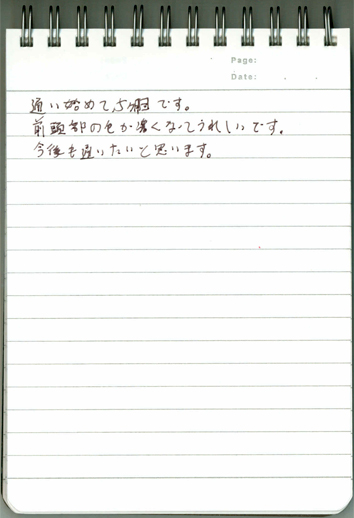 Page:
Date:
通い始めて5ヶ月です。
前頭部の色が濃くなってうれしいです。
今後も通いたいと思います。